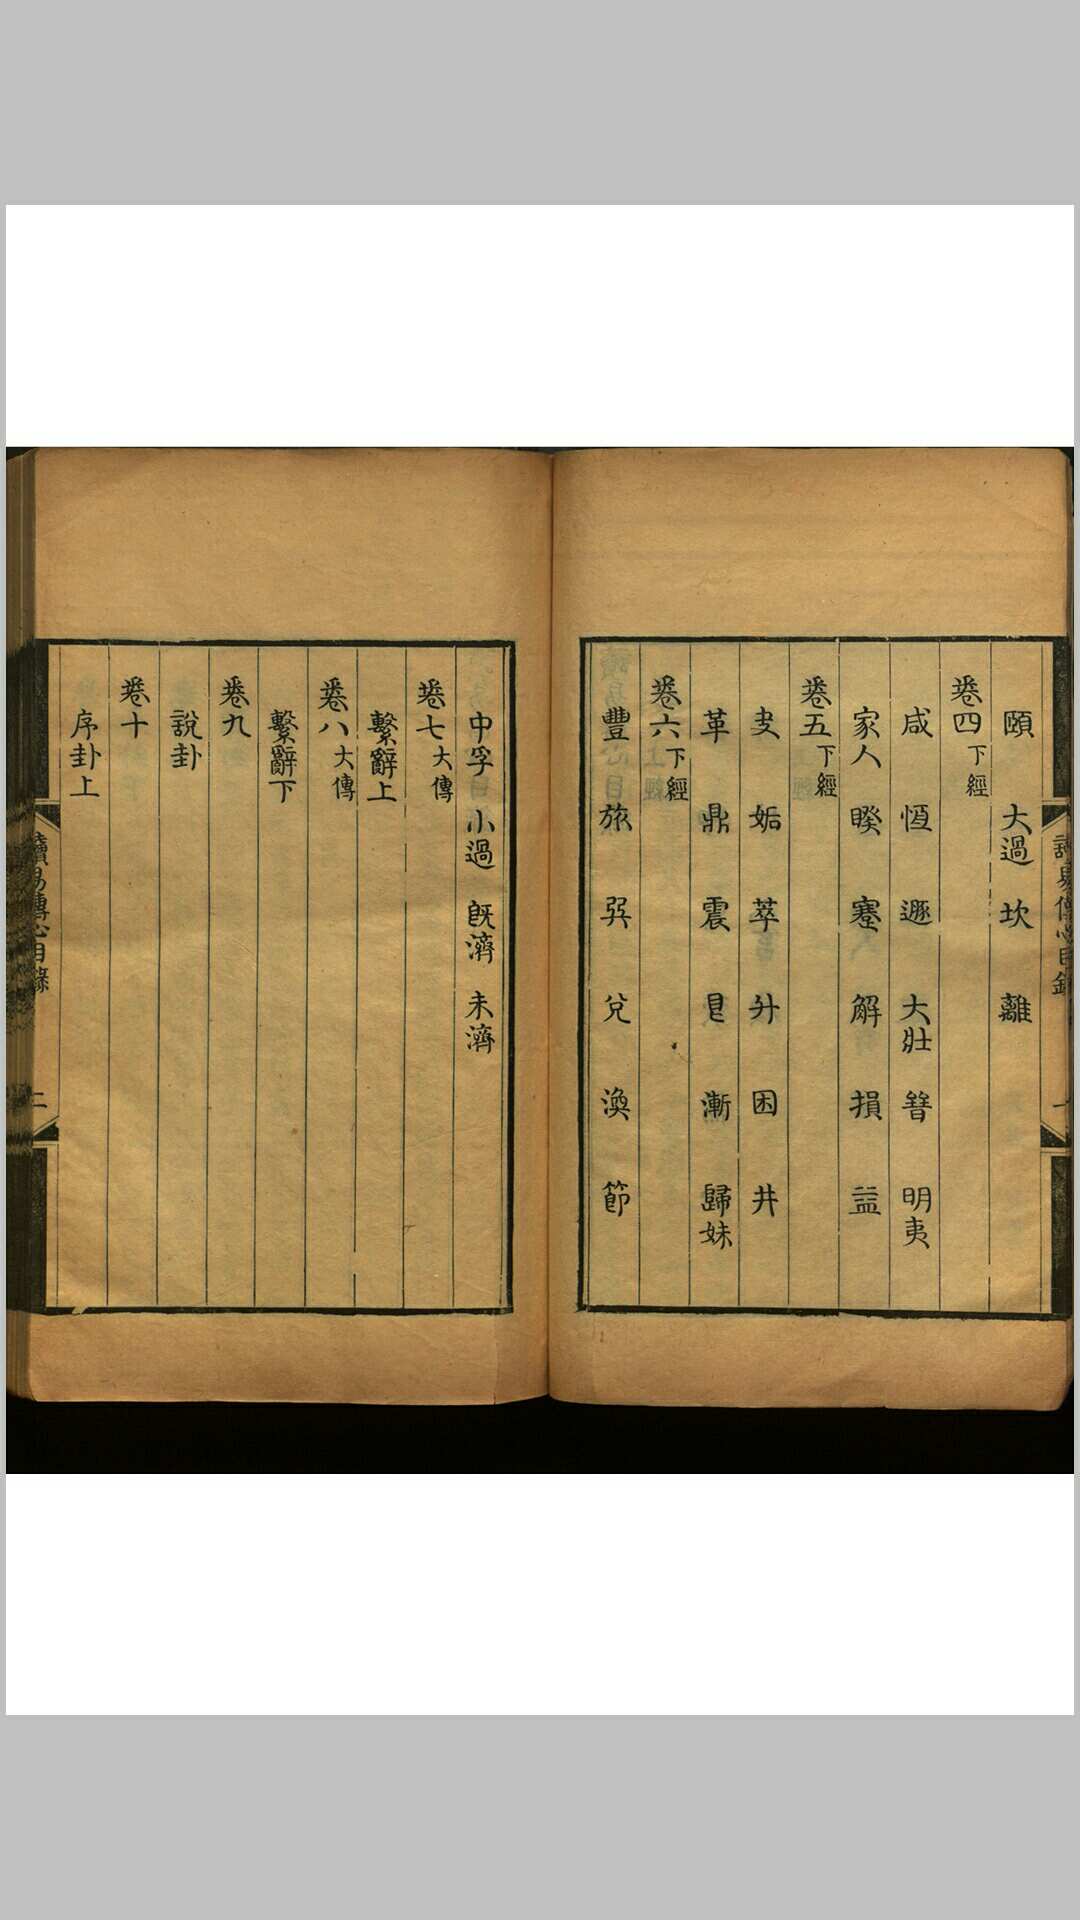 頤 大過 坎 離
卷四 下經
咸 恆 遯 大壯 簪 明夷
家人 睽 蹇 解 損 益
卷五 下經
夬 姤 萃 升 困 井
革 鼎 震 艮 漸 歸妹
卷六 下經
豐 旅 巽 兌 渙 節
中孚 小過 旣濟 未濟
卷七 大傳
繫辭上
卷八 大傳
繫辭下
卷九
說卦
卷十
序卦上
讀易傳心目錄 二